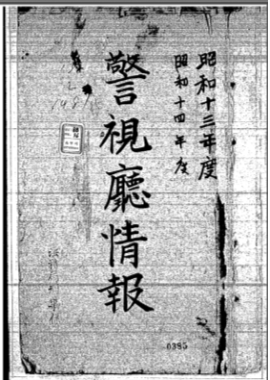 昭和十三年度
昭和十四年度
警視廳情報
0385